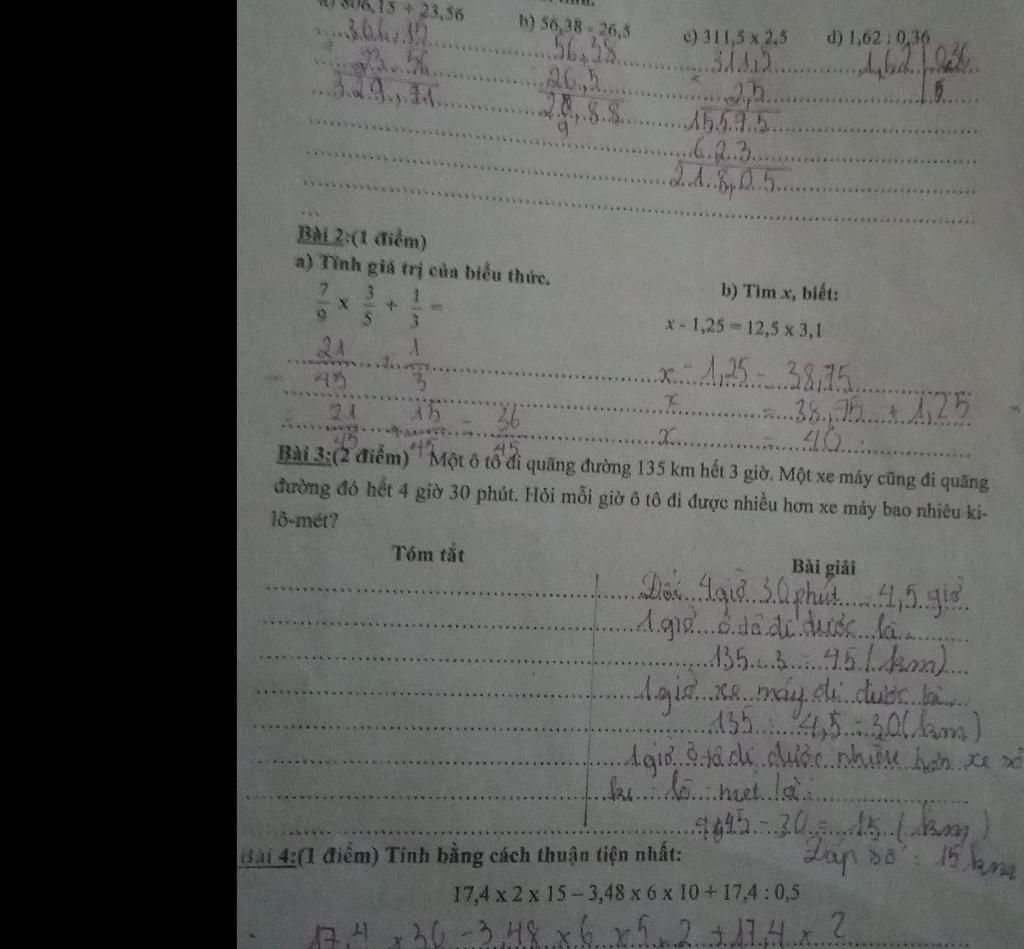 a) 306,15 + 23,56 b) 56,38 - 26,5 c) 311,5 x 2,5 d) 1,62 : 0,36
306,15 56,38 311,5 1,62 0,36
23,56 26,5 2,5 5
329,71 29,88 15575
623
218,05
Bài 2:(1 điểm)
a) Tính giá trị của biểu thức. b) Tìm x, biết:
7/9 x 3/5 + 1/3 = x - 1,25 = 12,5 x 3,1
21/45 + 1/3 x - 1,25 = 38,75
x = 38,75 + 1,25
= 21/45 + 15/45 = 36/45 x = 40
Bài 3:(2 điểm) Một ô tô đi quãng đường 135 km hết 3 giờ. Một xe máy cũng đi quãng
đường đó hết 4 giờ 30 phút. Hỏi mỗi giờ ô tô đi được nhiều hơn xe máy bao nhiêu ki-
lô-mét?
Tóm tắt Bài giải
Đổi 4 giờ 30 phút = 4,5 giờ
1 giờ ô tô đi được là
135 : 3 = 45 (km)
1 giờ xe máy đi được là
135 : 4,5 = 30 (km)
1 giờ ô tô đi được nhiều hơn xe số
ki - lô - mét là:
45 - 30 = 15 (km)
Đáp số : 15 km
Bài 4:(1 điểm) Tính bằng cách thuận tiện nhất:
17,4 x 2 x 15 – 3,48 x 6 x 10 + 17,4 : 0,5
17,4 x 30 - 3,48 x 6 x 5 x 2 + 17,4 x 2